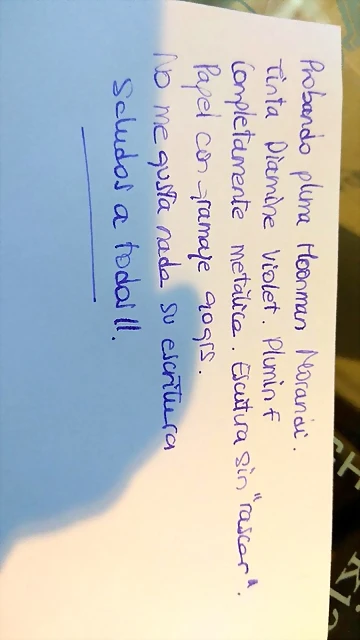 Probando pluma Moonman Morandi.
Tinta Diamine Violet. Plumin f
Completamente metálica. Escritura sin "rascar".
Papel con gramaje 90grs.
No me gusta nada su escritura
Saludos a todos!!